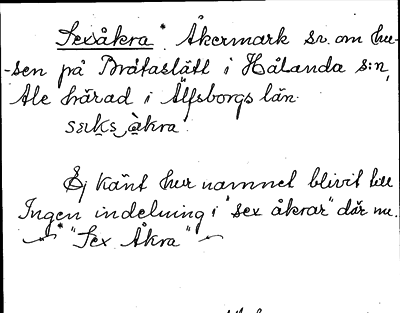 Sexåkra * Åkermark sv. om hu-
-sen på Bråtaslätt i Hålanda s:n,
Ale härad i Älfsborgs län.
sæks åkra
Ej känt hur namnet blivit till
Ingen indelning i "sex åkrar" där nu.
* "Sex Åkra"